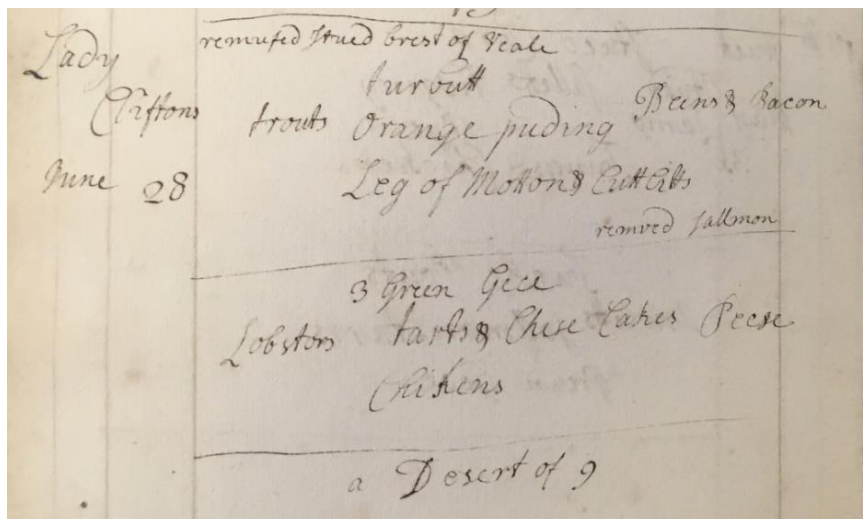 Lady
Cliftons
June 28
remufed stued brest of Veale
turbutt
trouts Orange puding Beens & Bacon
Leg of Motton & Cuttlitts
remved sallmon
3 Green Gece
Lobstors tarts & Chese Cakes Peese
Chikens
a Desert of 9